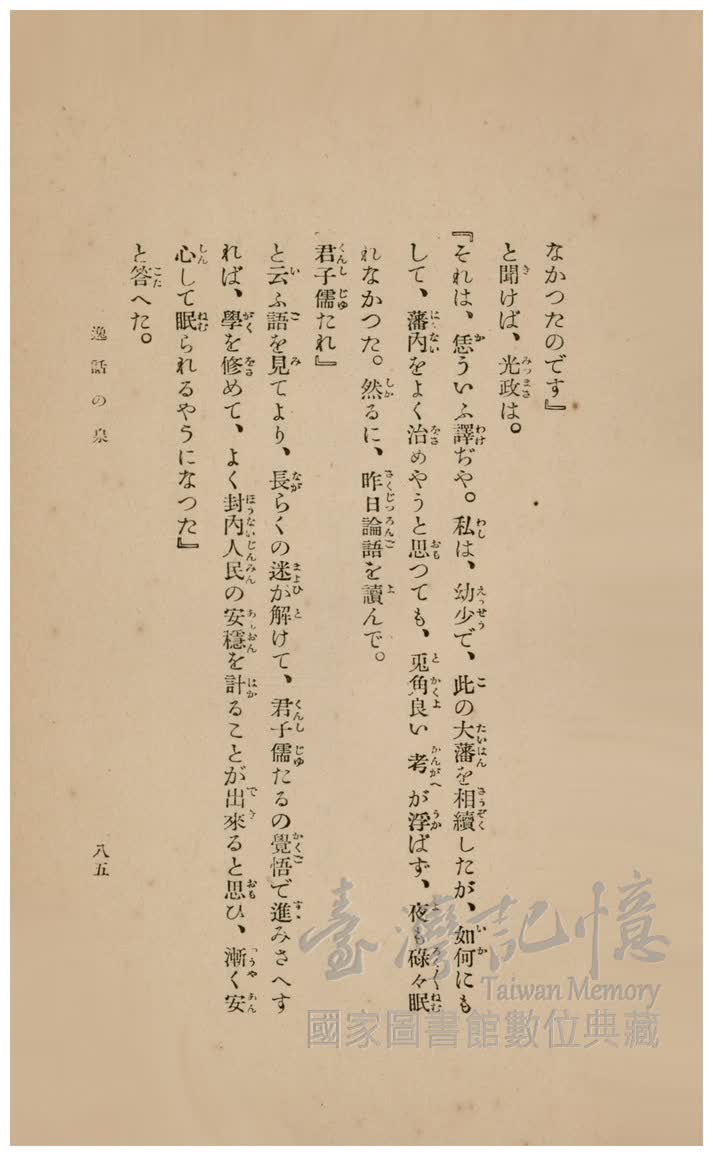 なかつたのです』
と聞けば、光政は。
『それは、恁ういふ譯ぢや。私は、幼少で、此の大藩を相續したが、如何にも
して、藩內をよく治めやうと思つても、兎角良い考が浮ばず、夜も碌々眠
れなかつた。然るに、昨日論語を讀んで。
君子儒たれ』
と云ふ語を見てより、長らくの迷が解けて、君子儒たるの覺悟で進みさへす
れば、學を修めて、よく封內人民の安穩を計ることが出來ると思ひ、漸く安
心して眠られるやうになつた』
と答へた。
逸話の泉
八五
臺灣記憶
Taiwan Memory
國家圖書館數位典藏